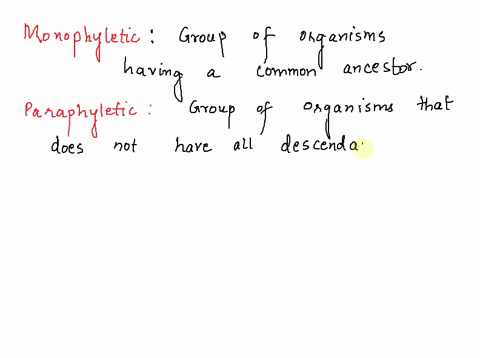 Monophyletic : Group of organisms
having a common ancestor.
Paraphyletic : Group of organisms that
does not have all descenda